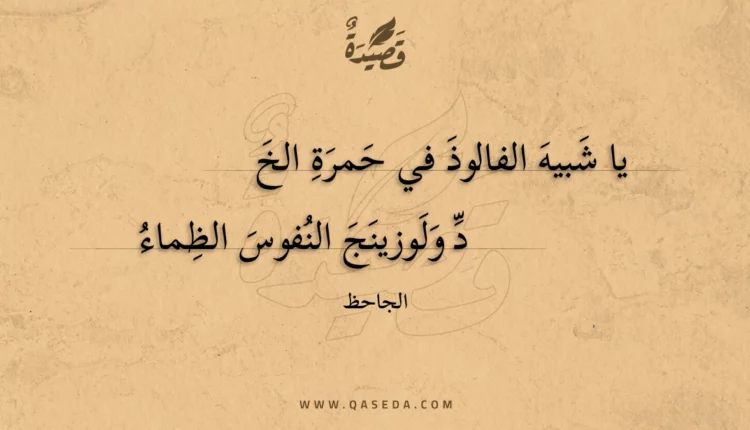 قَصِيدَةٌ
يا شَبيهَ الفالوذَ في حَمرَةِ الخَ
دِّ وَلَوزينَجَ النُفوسَ الظِماءُ
الجاحظ
WWW.QASEDA.COM